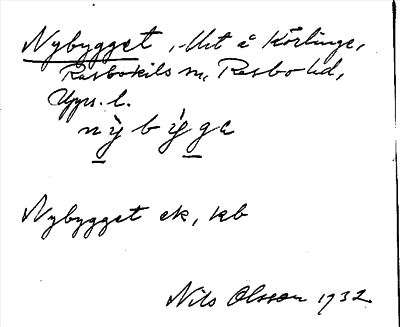 Nybygget, Utt å Körlinge,
Rasbokils sn, Rasbo hd,
Upps. l.
nỳ b ẏ́ gge
Nybygget ek, kb
Nils Olsson 1932